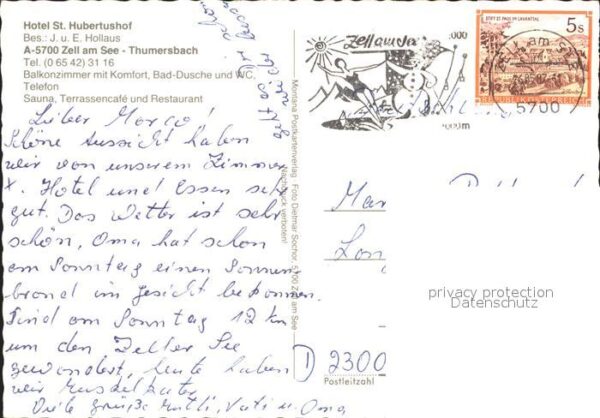 Hotel St. Hubertushof
Bes.: J. u. E. Hollaus
A-5700 Zell am See - Thumersbach
Tel. (0 65 42) 31 16
Balkonzimmer mit Komfort, Bad-Dusche und WC,
Telefon
Sauna, Terrassencafé und Restaurant
Lieber Marco!
Schöne Aussicht haben
wir von unserem Zimmer
x. Hotel und Essen sehr
gut. Das Wetter ist sehr
schön, Oma hat schon
am Sonntag einen Sonnen
brand im Gesicht bekommen.
Sind am Sonntag 12 km
um den Zeller See
gewandert, heute haben
wir Muskelkater
Viele Grüße Mutti, Vati u. Oma
Mondia Postkartenverlag Foto Dietmar Sochor, 5700 Zell am See
Nachdruck verboten!
Zell am See
5700
STIFT ST. PAUL IM LAVANTTAL
5s
REPUBLIK ÖSTERREICH
Mar
Lon
privacy protection
Datenschutz
D 2300
Postleitzahl